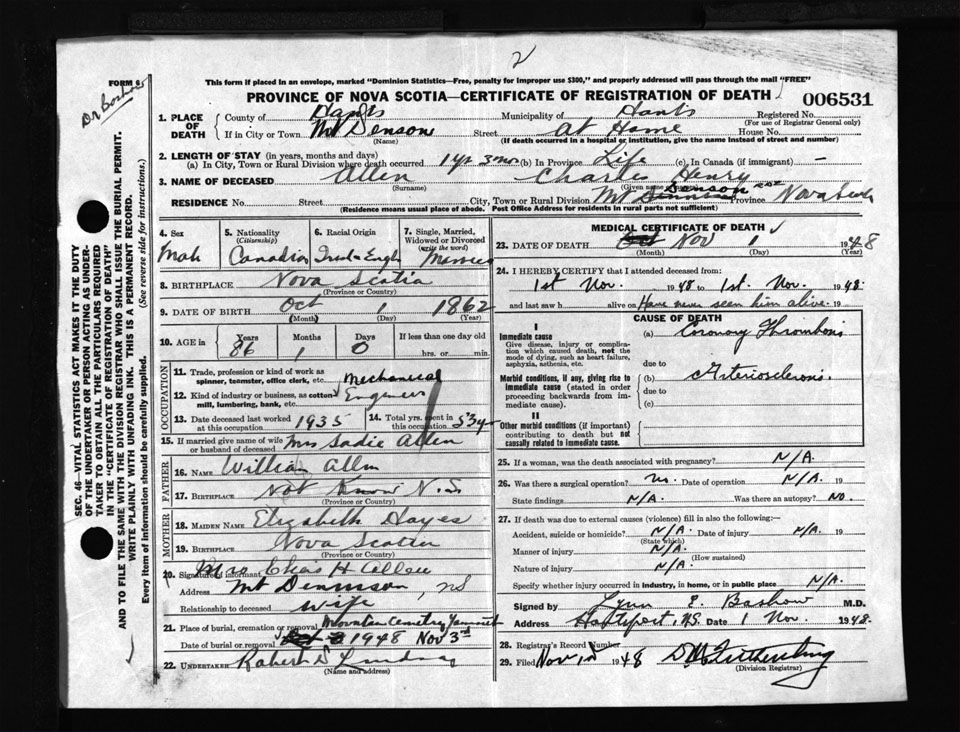 2
FORM 6
This form if placed in an envelope, marked "Dominion Statistics—Free, penalty for improper use $300," and properly addressed will pass through the mail "FREE"
PROVINCE OF NOVA SCOTIA—CERTIFICATE OF REGISTRATION OF DEATH
006531
1. PLACE OF DEATH
County of Hants
Municipality of Hants
Registered No.
(For use of Registrar General only)
If in City or Town Mt Denson
(Name)
Street At Home House No.
(If death occurred in a hospital or institution, give the name instead of street and number)
2. LENGTH OF STAY (in years, months and days)
(a) In City, Town or Rural Division where death occurred 1 yr 3 mo (b) In Province Life (c) In Canada (if immigrant) —
3. NAME OF DECEASED Allen Charles Henry
(Surname) (Given names)
RESIDENCE No. Street City, Town or Rural Division Mt Denson Province Nova Scotia
(Residence means usual place of abode. Post Office Address for residents in rural parts not sufficient)
4. Sex
Male
5. Nationality (Citizenship)
Canadian
6. Racial Origin
7. Single, Married, Widowed or Divorced (write the word)
Married
8. BIRTHPLACE Nova Scotia
(Province or Country)
9. DATE OF BIRTH Oct 1 1862
(Month) (Day) (Year)
10. AGE in Years Months Days If less than one day old
86 1 0 hrs. or min.
OCCUPATION
11. Trade, profession or kind of work as spinner, teamster, office clerk, etc. Mechanical
12. Kind of industry or business, as cotton-mill, lumbering, bank, etc. Engineer
13. Date deceased last worked at this occupation 1935
14. Total yrs. spent in this occupation
15. If married give name of wife or husband of deceased Mrs Sadie Allen
FATHER
16. NAME William Allen
17. BIRTHPLACE Not Know N.S.
(Province or Country)
MOTHER
18. MAIDEN NAME Elizabeth Hayes
19. BIRTHPLACE Nova Scotia
(Province or Country)
20. Signature of informant Mrs Chas H Allen
Address Mt Dennison, NS
Relationship to deceased wife
21. Place of burial, cremation or removal Cemetery
Date of burial or removal 1948 Nov 3rd
22. UNDERTAKER
(Name and address)
MEDICAL CERTIFICATE OF DEATH
23. DATE OF DEATH Nov 1 1948
(Month) (Day) (Year)
24. I HEREBY CERTIFY that I attended deceased from:
1st Nov. 1948 to 1st. Nov. 1948
and last saw h alive on Have never seen him alive. 19
CAUSE OF DEATH
I
Immediate cause
Give disease, injury or complication which caused death, not the mode of dying, such as heart failure, asphyxia, asthenia, etc.
(a) Coronary Thrombosis
due to
Morbid conditions, if any, giving rise to immediate cause (stated in order proceeding backwards from immediate cause).
(b) Arteriosclerosis.
due to
(c)
II
Other morbid conditions (if important) contributing to death but not causally related to immediate cause.
25. If a woman, was the death associated with pregnancy? N/A.
26. Was there a surgical operation? no. Date of operation N/A. 19
State findings N/A. Was there an autopsy? No.
27. If death was due to external causes (violence) fill in also the following:—
Accident, suicide or homicide? N/A. Date of injury N/A. 19
(State which)
Manner of injury N/A.
(How sustained)
Nature of injury N/A.
Specify whether injury occurred in industry, in home, or in public place N/A.
Signed by Lynn E. Bashow M.D.
Address Hantsport, N.S. Date 1 Nov. 1948.
28. Registrar's Record Number
29. Filed Nov 1948
(Division Registrar)
SEC. 46—VITAL STATISTICS ACT MAKES IT THE DUTY OF THE UNDERTAKER OR PERSON ACTING AS UNDERTAKER TO OBTAIN ALL THE PARTICULARS REQUIRED IN THE "CERTIFICATE OF REGISTRATION OF DEATH" AND TO FILE THE SAME WITH THE DIVISION REGISTRAR WHO SHALL ISSUE THE BURIAL PERMIT.
WRITE PLAINLY WITH UNFADING INK. THIS IS A PERMANENT RECORD.
Every item of information should be carefully supplied. (See reverse side for instructions.)